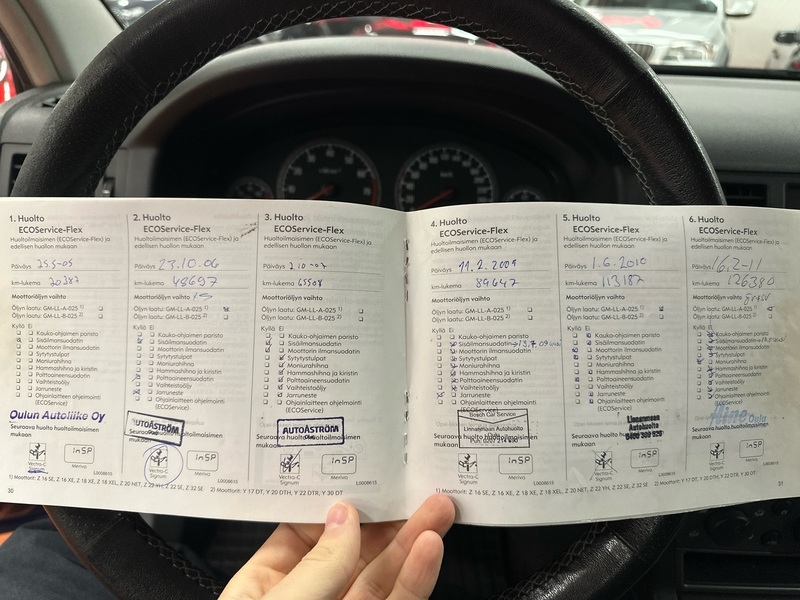 1. Huolto
ECOService-Flex
Huoltoilmaisimen (ECOService-Flex) ja
edellisen huollon mukaan
Päiväys 25.5-05
km-lukema 20387
Moottoriöljyn vaihto
Öljyn laatu: GM-LL-A-025 1)
Öljyn laatu: GM-LL-B-025 2)
Kyllä Ei
Kauko-ohjaimen paristo
Sisäilmansuodatin
Moottorin ilmansuodatin
Sytytystulpat
Moniurahihna
Hammashihna ja kiristin
Polttoaineensuodatin
Vaihteistoöljy
Jarruneste
Ohjainlaitteen ohjelmointi
(ECOService)
Oulun Autoliike Oy
Seuraava huolto huoltoilmaisimen
mukaan
Vectra-C
Signum
inSP
Meriva
L0008615
30
2. Huolto
ECOService-Flex
Huoltoilmaisimen (ECOService-Flex) ja
edellisen huollon mukaan
Päiväys 23.10.06
km-lukema 48697
Moottoriöljyn vaihto
Öljyn laatu: GM-LL-A-025 1)
Öljyn laatu: GM-LL-B-025 2)
Kyllä Ei
Kauko-ohjaimen paristo
Sisäilmansuodatin
Moottorin ilmansuodatin
Sytytystulpat
Moniurahihna
Hammashihna ja kiristin
Polttoaineensuodatin
Vaihteistoöljy
Jarruneste
Ohjainlaitteen ohjelmointi
(ECOService)
AUTOÅSTRÖM
Seuraava huolto huoltoilmaisimen
mukaan
Vectra-C
Signum
inSP
Meriva
L0008615
3. Huolto
ECOService-Flex
Huoltoilmaisimen (ECOService-Flex) ja
edellisen huollon mukaan
Päiväys
km-lukema 65508
Moottoriöljyn vaihto
Öljyn laatu: GM-LL-A-025 1)
Öljyn laatu: GM-LL-B-025 2)
Kyllä Ei
Kauko-ohjaimen paristo
Sisäilmansuodatin
Moottorin ilmansuodatin
Sytytystulpat
Moniurahihna
Hammashihna ja kiristin
Polttoaineensuodatin
Vaihteistoöljy
Jarruneste
Ohjainlaitteen ohjelmointi
(ECOService)
AUTOÅSTRÖM
Seuraava huolto huoltoilmaisimen
mukaan
Vectra-C
Signum
inSP
Meriva
L0008615
1) Moottorit: Z 16 SE, Z 16 XE, Z 18 XE, Z 18 XEL, Z 20 NET, Z 22 YH, Z 22 SE, Z 32 SE 2) Moottorit: Y 17 DT, Y 20 DTH, Y 22 DTR, Y 30 DT
4. Huolto
ECOService-Flex
Huoltoilmaisimen (ECOService-Flex) ja
edellisen huollon mukaan
Päiväys 11.2.2009
km-lukema 89647
Moottoriöljyn vaihto
Öljyn laatu: GM-LL-A-025 1)
Öljyn laatu: GM-LL-B-025 2)
Kyllä Ei
Kauko-ohjaimen paristo
Sisäilmansuodatin
Moottorin ilmansuodatin
Sytytystulpat
Moniurahihna
Hammashihna ja kiristin
Polttoaineensuodatin
Vaihteistoöljy
Jarruneste
Ohjainlaitteen ohjelmointi
(ECOService)
Bosch Car Service
Linnanmaan Autohuolto
Seuraava huolto huoltoilmaisimen
mukaan
Vectra-C
Signum
inSP
Meriva
L0008615
5. Huolto
ECOService-Flex
Huoltoilmaisimen (ECOService-Flex) ja
edellisen huollon mukaan
Päiväys 1.6.2010
km-lukema 113187
Moottoriöljyn vaihto
Öljyn laatu: GM-LL-A-025 1)
Öljyn laatu: GM-LL-B-025 2)
Kyllä Ei
Kauko-ohjaimen paristo
Sisäilmansuodatin
Moottorin ilmansuodatin
Sytytystulpat
Moniurahihna
Hammashihna ja kiristin
Polttoaineensuodatin
Vaihteistoöljy
Jarruneste
Ohjainlaitteen ohjelmointi
(ECOService)
Linnanmaan
Autohuolto
Seuraava huolto huoltoilmaisimen
mukaan
Vectra-C
Signum
inSP
Meriva
L0008615
6. Huolto
ECOService-Flex
Huoltoilmaisimen (ECOService-Flex) ja
edellisen huollon mukaan
Päiväys 16.2-11
km-lukema 126380
Moottoriöljyn vaihto
Öljyn laatu: GM-LL-A-025 1)
Öljyn laatu: GM-LL-B-025 2)
Kyllä Ei
Kauko-ohjaimen paristo
Sisäilmansuodatin
Moottorin ilmansuodatin
Sytytystulpat
Moniurahihna
Hammashihna ja kiristin
Polttoaineensuodatin
Vaihteistoöljy
Jarruneste
Ohjainlaitteen ohjelmointi
(ECOService)
Oulu
Seuraava huolto huoltoilmaisimen
mukaan
Vectra-C
Signum
inSP
Meriva
L0008615
1) Moottorit: Z 16 SE, Z 16 XE, Z 18 XE, Z 18 XEL, Z 20 NET, Z 22 YH, Z 22 SE, Z 32 SE 2) Moottorit: Y 17 DT, Y 20 DTH, Y 22 DTR, Y 30 DT
31